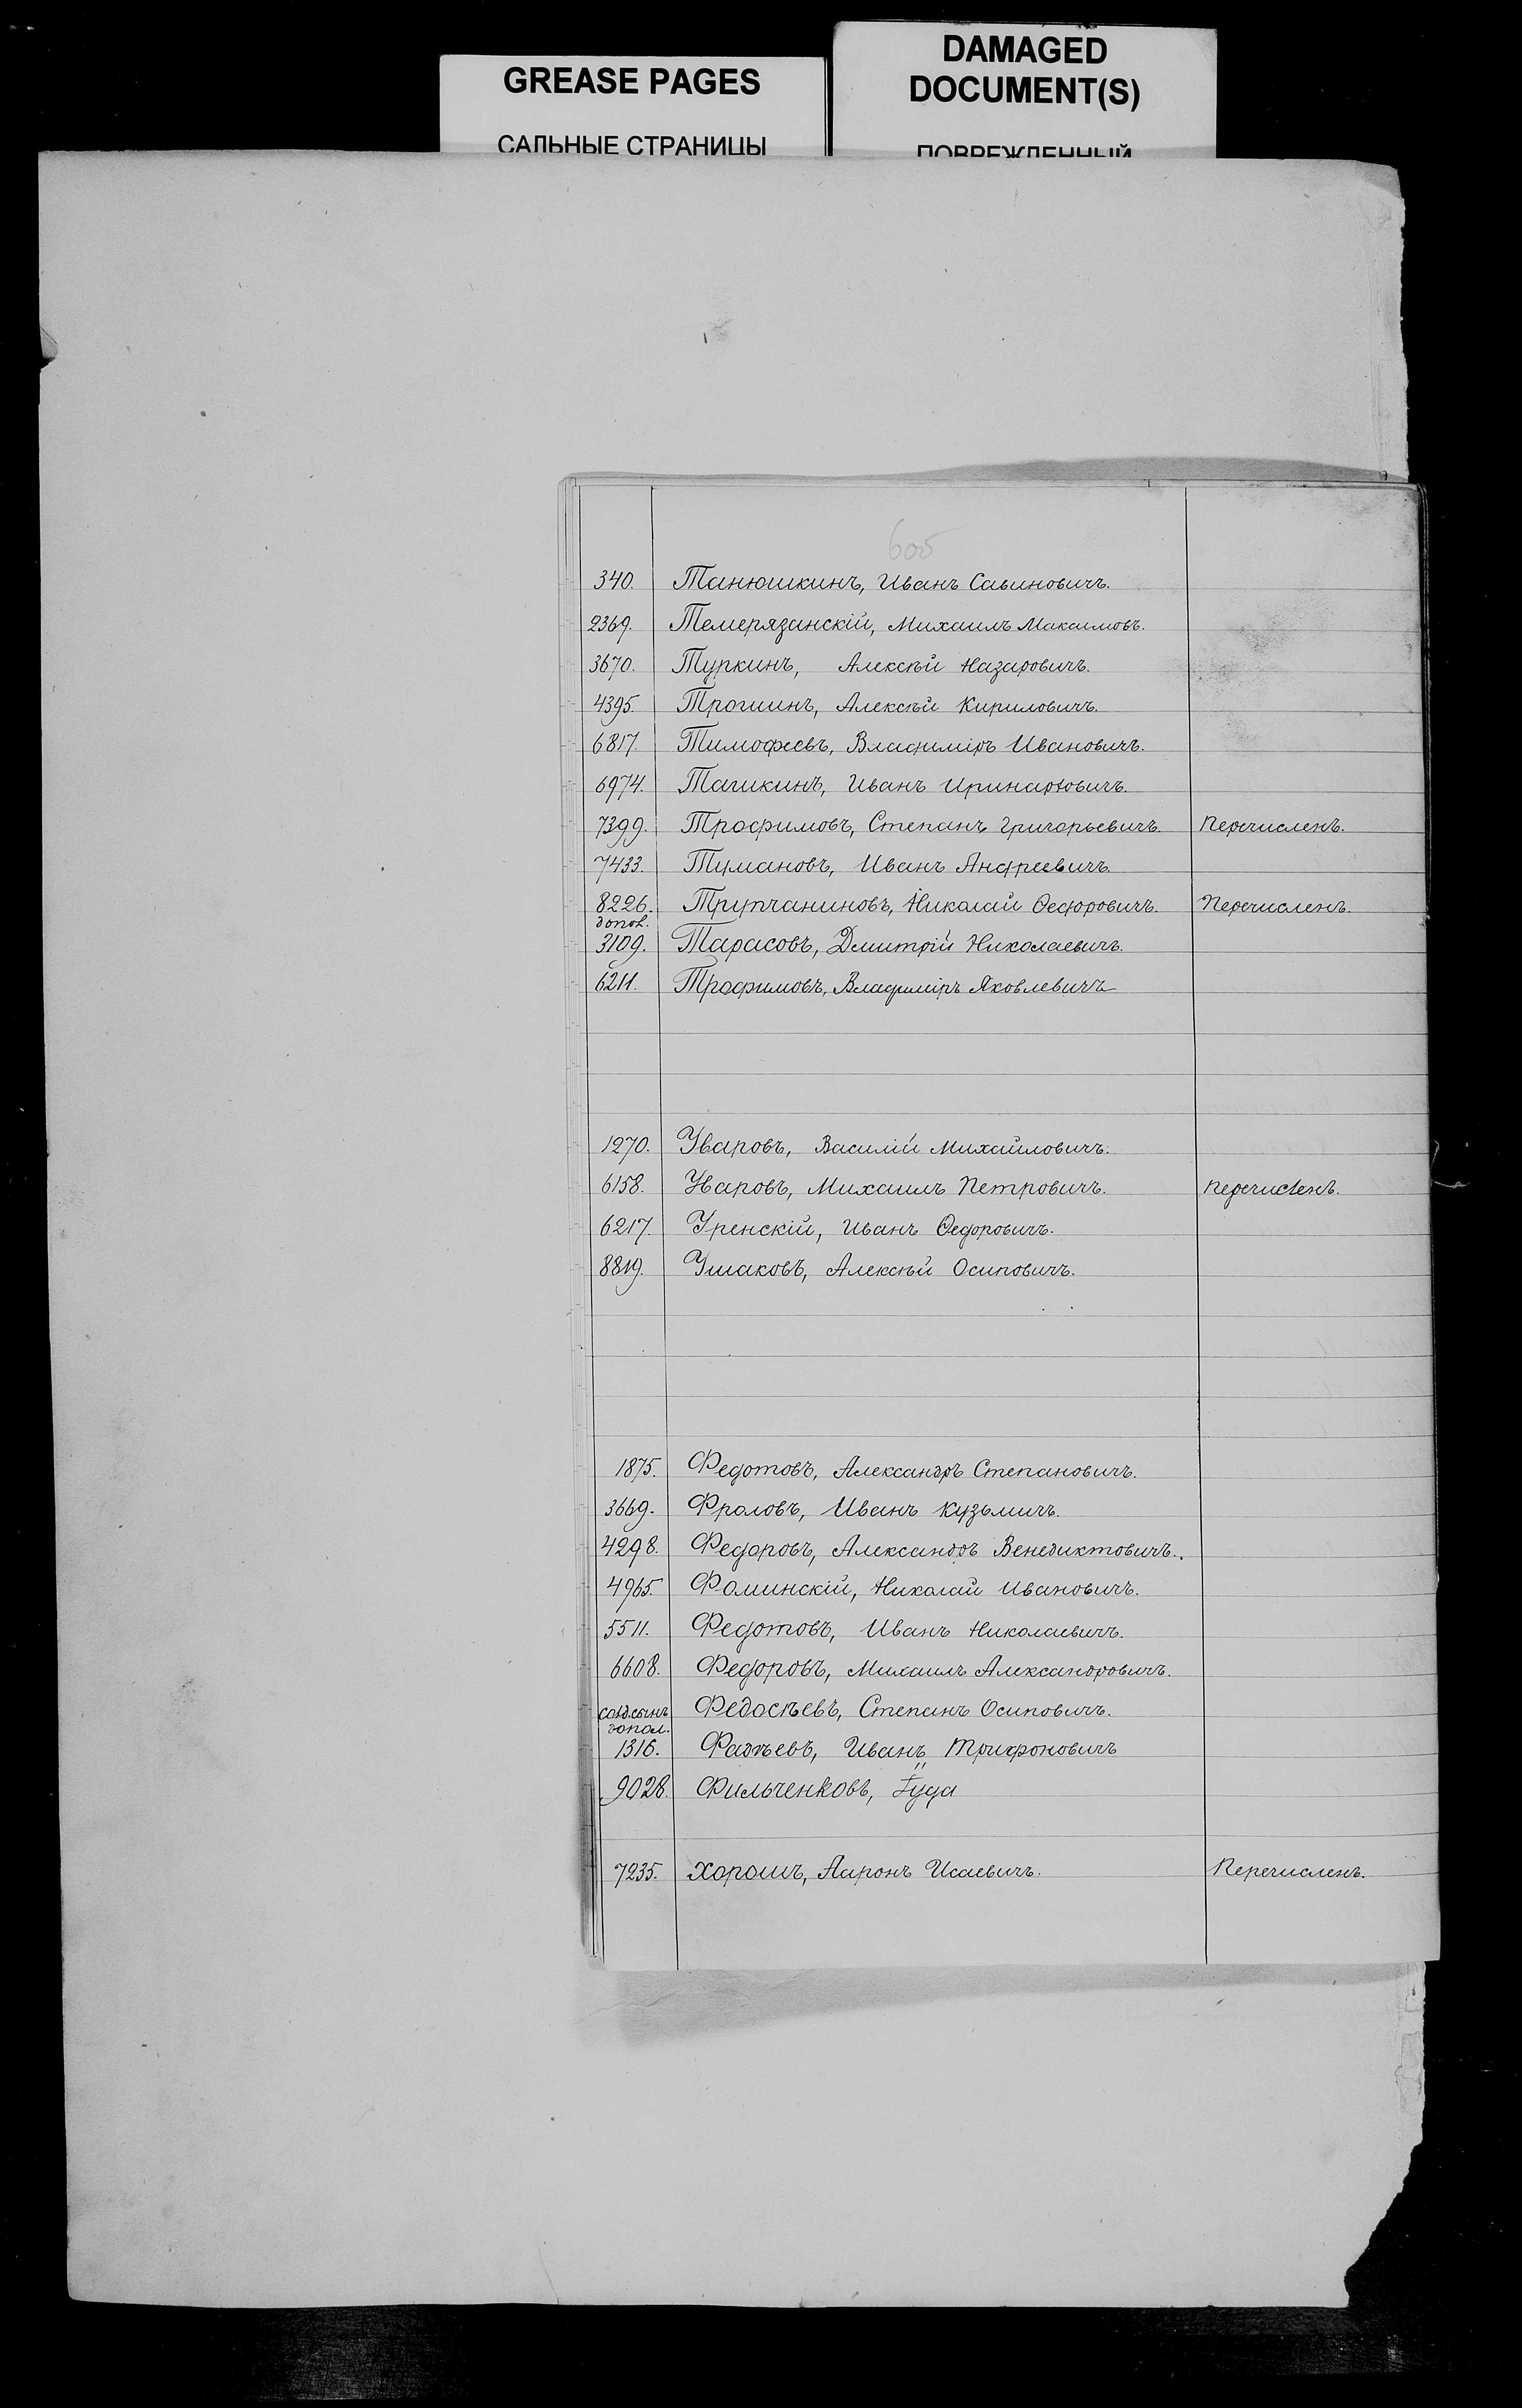 GREASE PAGES
САЛЬНЫЕ СТРАНИЦЫ
DAMAGED
DOCUMENT(S)
ПОВРЕЖДЕННЫЙ
605
340. Танюшкинъ, Иванъ Савиновичъ.
2369. Темерязанскій, Михаилъ Максимовъ.
3670. Туркинъ, Алексѣй Назаровичъ.
4395. Трошинъ, Алексѣй Кириловичъ.
6817. Тимофеевъ, Владиміръ Ивановичъ.
6974. Ташкинъ, Иванъ Иринарховичъ.
7399. Трофимовъ, Степанъ Григорьевичъ. Перечисленъ.
7433. Тумановъ, Иванъ Андреевичъ.
8226. Трупчаниновъ, Николай Ѳедоровичъ. Перечисленъ.
допол.
3109. Тарасовъ, Дмитрій Николаевичъ.
6211. Трофимовъ, Владиміръ Яковлевичъ
1270. Уваровъ, Василій Михайловичъ.
6158. Уваровъ, Михаилъ Петровичъ. Перечисленъ.
6217. Уренскій, Иванъ Ѳедоровичъ.
8819. Ушаковъ, Алексѣй Осиповичъ.
1875. Федотовъ, Александръ Степановичъ.
3669. Фроловъ, Иванъ Кузьмичъ.
4298. Федоровъ, Александръ Венедиктовичъ.
4965. Фоминскій, Николай Ивановичъ.
5511. Федотовъ, Иванъ Николаевичъ.
6608. Федоровъ, Михаилъ Александровичъ.
солд.сынъ Федосѣевъ, Степанъ Осиповичъ.
допол.
1316. Фадѣевъ, Иванъ Трифоновичъ
9028. Фильченковъ, Іуда
7235. Хорошъ, Ааронъ Исаевичъ. Перечисленъ.